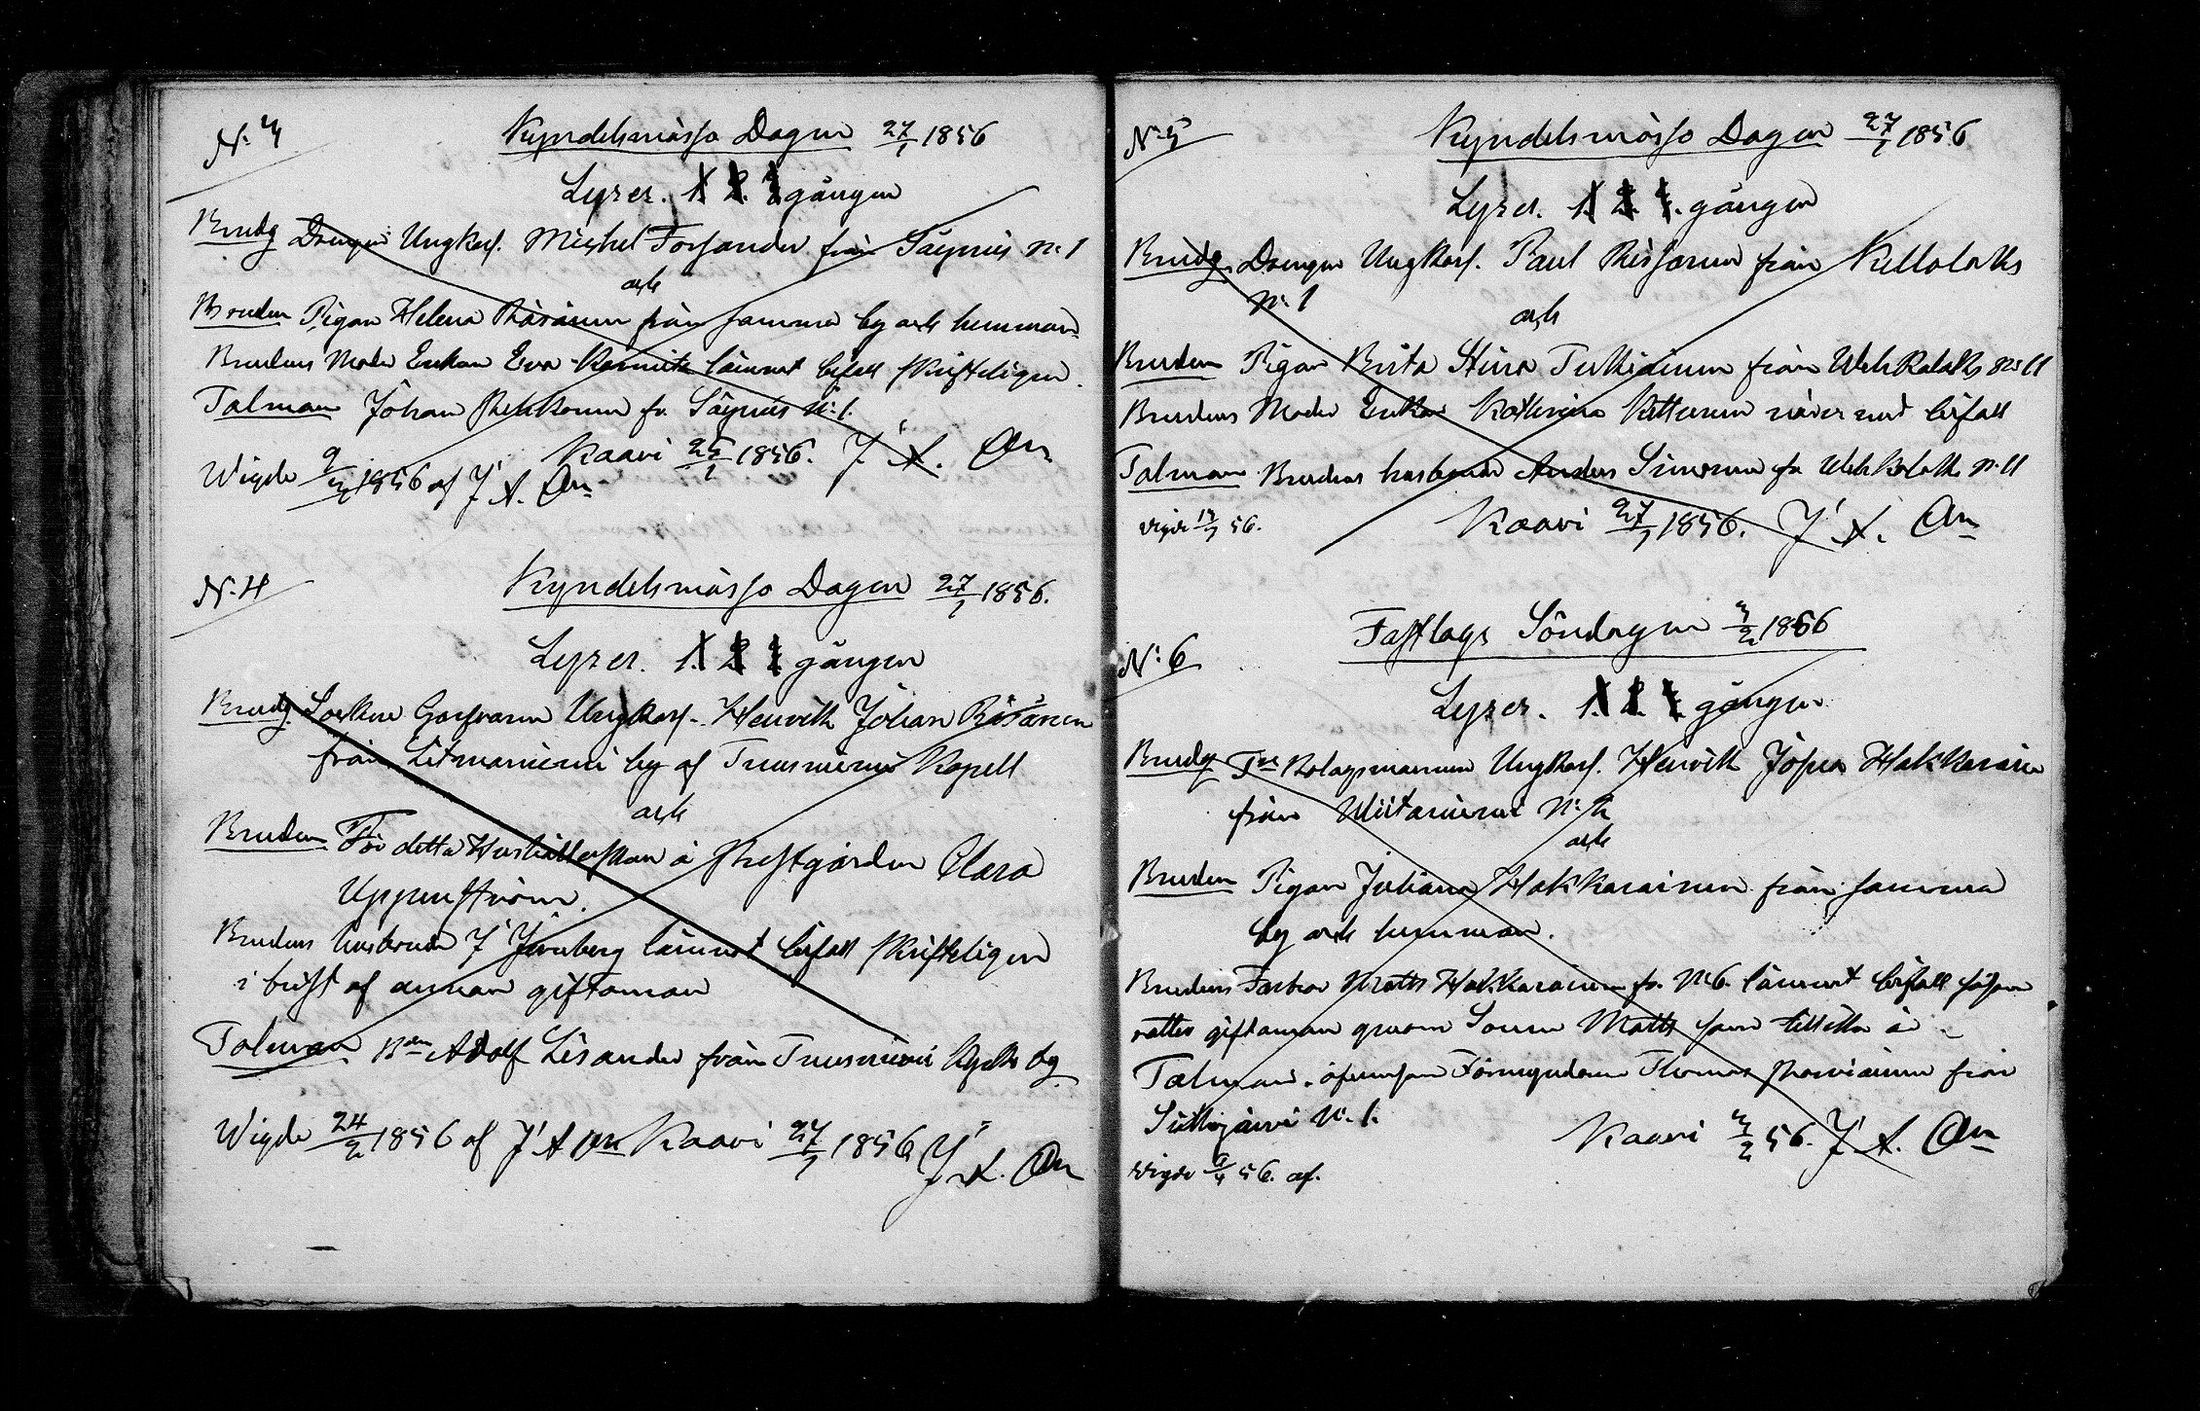 N:3
Kyndelsmässo Dagen 27/1 1856
Lyses. 1. 2. 3 gången
Brudg Drengen Ungkarl. Michel Forsander från Säynius N:1
och
Bruden Pigan Helena Räsänen från samma by och hemman
Brudens Moder Enkan Eva lämnat bifall skrifteligen.
Talman Johan fr. Säynius N:1.
Kaavi 25/1 1856. J. A.
Wigde 9/3 1856 af J. A.
N:4
Kyndelsmässo Dagen 27/1 1856.
Lyses. 1. 2 3 gången
Brudg. Sockne Garfvaren Ungkarl. Henrik Johan Räsänen
från Litmaniemi by af Tuusniemi Kapell
och
Bruden För detta Hushållerskan å Prestgården Clara
Uppenström.
Brudens husbonde J lämnat bifall skrifteligen
i brist af annan giftoman
Talman Adolf Lisander från Tuusniemi by
Wigde 24/2 1856 af J A Kaavi 27/1 1856 J. A.
N:5
Kyndelsmässo Dagen 27/1 1856
Lyses. 1. 2. 3. gången
Brudg. Drengen Ungkarl. Paul Rissanen från Killolaks
N:1
och
Bruden Pigan Brita Stina från Wehkalaks No 11
Brudens Moder Enkan Katherina närvarat bifall
Talman Brudens husbonde Anders Simonen fr Wehkalaks N:11
Kaavi 27/1 1856. J. A.
vigde 56.
Fastlags Söndagen 3/2 1856
N:6
Lyses. 1. 2. 3. gången
Brudg Bolagsmannen Ungkarl. Henrik Johan Hakkarainen
från Niitaniemi N:
och
Bruden Pigan Juliana Hakkarainen från samma
by och hemman.
Brudens Farbror Matts Hakkarainen fr. N:6. lämnat bifall såsom
rätter giftoman genom Sonen Matts som tillika är
Talman. äfvensom Förmyndaren Thomas från
Siikajärvi N:1.
Kaavi 3/2 56. J. A.
vigde 56. af.